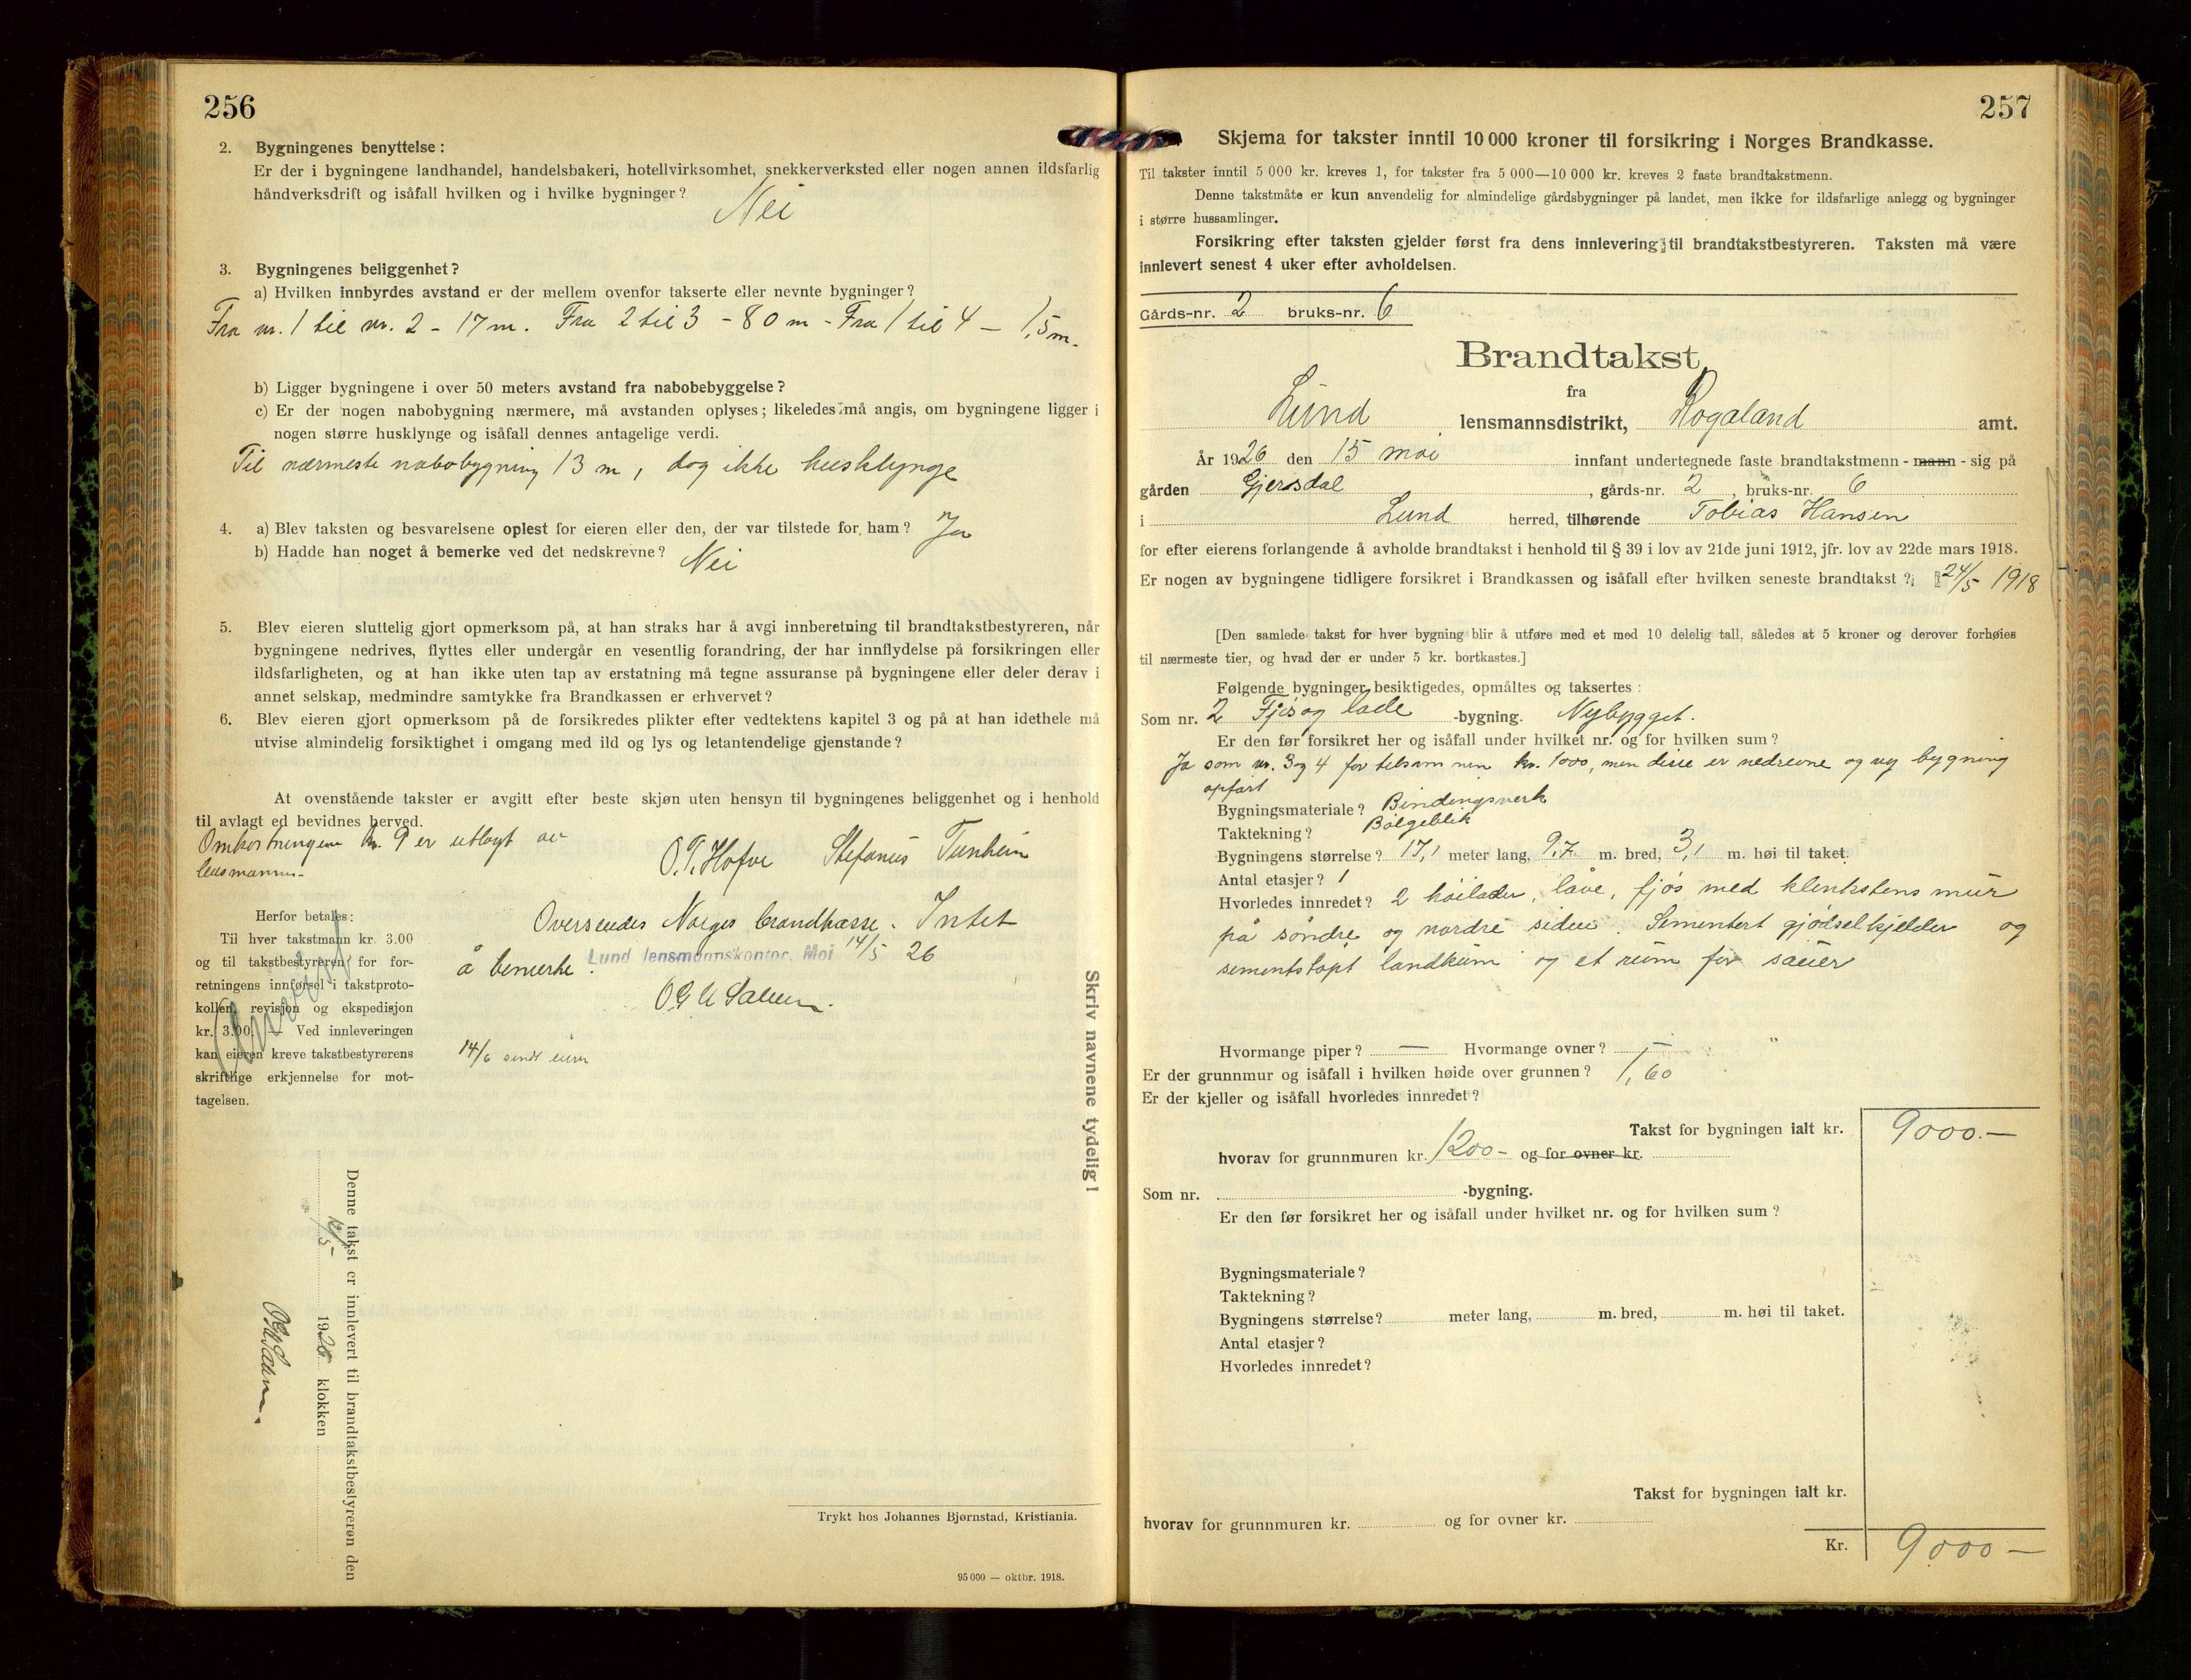 256
2. Bygningenes benyttelse:
Er der i bygningene landhandel, handelsbakeri, hotellvirksomhet, snekkerverksted eller nogen annen ildsfarlig
håndverksdrift og isåfall hvilken og i hvilke bygninger?
Nei
3. Bygningenes beliggenhet?
a) Hvilken innbyrdes avstand er der mellem ovenfor takserte eller nevnte bygninger?
Fra nr. 1 til nr. 2 - 17 m. Fra 2 til 3 - 80 m - Fra 1 til 4 - 1,5 m.
b) Ligger bygningene i over 50 meters avstand fra nabobebyggelse?
c) Er der nogen nabobygning nærmere, må avstanden oplyses; likeledes må angis, om bygningene ligger i
nogen større husklynge og isåfall dennes antagelige verdi.
Til nærmeste nabobygning 13 m, dog ikke husklynge
4. a) Blev taksten og besvarelsene oplest for eieren eller den, der var tilstede for ham? Ja
b) Hadde han noget å bemerke ved det nedskrevne? Nei
5. Blev eieren sluttelig gjort opmerksom på, at han straks har å avgi innberetning til brandtakstbestyreren, når
bygningene nedrives, flyttes eller undergår en vesentlig forandring, der har innflydelse på forsikringen eller
ildsfarligheten, og at han ikke uten tap av erstatning må tegne assuranse på bygningene eller deler derav i
annet selskap, medmindre samtykke fra Brandkassen er erhvervet?
6. Blev eieren gjort opmerksom på de forsikredes plikter efter vedtektens kapitel 3 og på at han idethele må
utvise almindelig forsiktighet i omgang med ild og lys og letantendelige gjenstande?
At ovenstående takster er avgitt efter beste skjøn uten hensyn til bygningenes beliggenhet og i henhold
til avlagt ed bevidnes herved.
Omkostningene kr. 9 er utlagt av
lensmannen.
O. T. Hofve Stefanus Tunheim
Herfor betales:
Til hver takstmann kr. 3.00
og til takstbestyreren for for-
retningens innførsel i takstproto-
kollen, revisjon og ekspedisjon
kr. 3.00. — Ved innleveringen
kan eieren kreve takstbestyrerens
skriftlige erkjennelse for mot-
tagelsen.
Oversendes Norges brandkasse. Intet
å bemerke.
Lund lensmannskontor, Moi 14/5 26
14/6 sendt eieren
Skriv navnene tydelig!
Denne takst er innlevert til brandtakstbestyreren den
1926 klokken
Trykt hos Johannes Bjørnstad, Kristiania.
95 000 — oktbr. 1918.
257
Skjema for takster inntil 10 000 kroner til forsikring i Norges Brandkasse.
Til takster inntil 5 000 kr. kreves 1, for takster fra 5 000—10 000 kr. kreves 2 faste brandtakstmenn.
Denne takstmåte er kun anvendelig for almindelige gårdsbygninger på landet, men ikke for ildsfarlige anlegg og bygninger
i større hussamlinger.
Forsikring efter taksten gjelder først fra dens innlevering til brandtakstbestyreren. Taksten må være
innlevert senest 4 uker efter avholdelsen.
Gårds-nr. 2 bruks-nr. 6
Brandtakst
fra
Lund lensmannsdistrikt, Rogaland amt.
År 1926 den 15 mai innfant undertegnede faste brandtakstmenn - mann - sig på
gården Gjersdal, gårds-nr. 2, bruks-nr. 6
i Lund herred, tilhørende Tobias Hansen
for efter eierens forlangende å avholde brandtakst i henhold til § 39 i lov av 21de juni 1912, jfr. lov av 22de mars 1918.
Er nogen av bygningene tidligere forsikret i Brandkassen og isåfall efter hvilken seneste brandtakst? 24/5 1918
[Den samlede takst for hver bygning blir å utføre med et med 10 delelig tall, således at 5 kroner og derover forhøies
til nærmeste tier, og hvad der er under 5 kr. bortkastes.]
Følgende bygninger besiktigedes, opmåltes og taksertes:
Som nr. 2 Fjøs og lade -bygning. Nybygget.
Er den før forsikret her og isåfall under hvilket nr. og for hvilken sum?
Ja som nr. 3 og 4 for tilsammen kr. 1000, men disse er nedrevne og ny bygning
opført
Bygningsmateriale? Bindingsverk
Taktekning? Bølgeblik
Bygningens størrelse? 17,1 meter lang, 9,7 m. bred, 3,1 m. høi til taket.
Antal etasjer? 1
Hvorledes innredet? 2 høilader, låve, fjøs med klinkstens mur
på søndre og nordre siden. Sementert gjødselkjelder og
sementstøpt landkum og et rum for sauer
Hvormange piper? — Hvormange ovner? —
Er der grunnmur og isåfall i hvilken høide over grunnen? 1,60
Er der kjeller og isåfall hvorledes innredet?
Takst for bygningen ialt kr. 9000.—
hvorav for grunnmuren kr. 1200- og for ovner kr.
Som nr. -bygning.
Er den før forsikret her og isåfall under hvilket nr. og for hvilken sum?
Bygningsmateriale?
Taktekning?
Bygningens størrelse? meter lang, m. bred, m. høi til taket.
Antal etasjer?
Hvorledes innredet?
Takst for bygningen ialt kr.
hvorav for grunnmuren kr. og for ovner kr.
Kr. 9000—